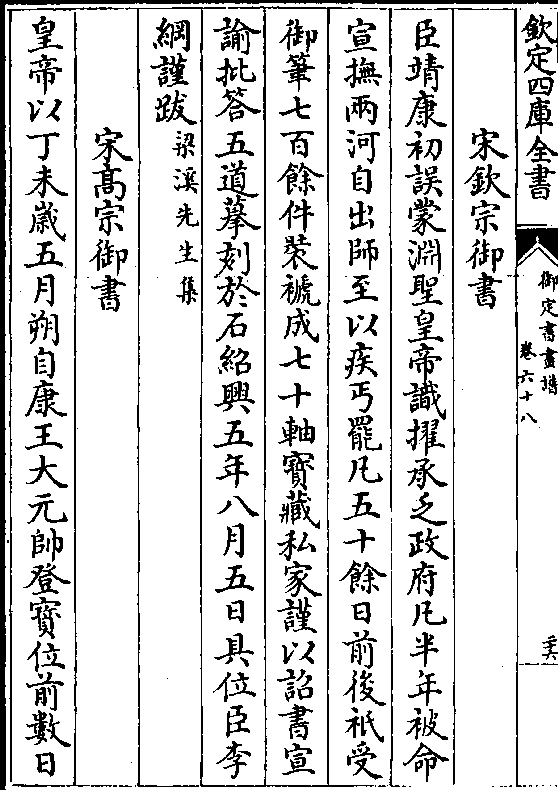 欽定四庫全書
御定書畫譜
卷六十八
宋欽宗御書
臣靖康初誤蒙淵聖皇帝識擢承乏政府凡半年被命
宣撫兩河自出師至以疾丐罷凡五十餘日前後祗受
御筆七百餘件裝褫成七十軸寶藏私家謹以詔書宣
諭批答五道摹刻於石紹興五年八月五日具位臣李
綱謹跋梁溪先生集
宋髙宗御書
皇帝以丁未嵗五月朔自康王大元帥登寳位前數日